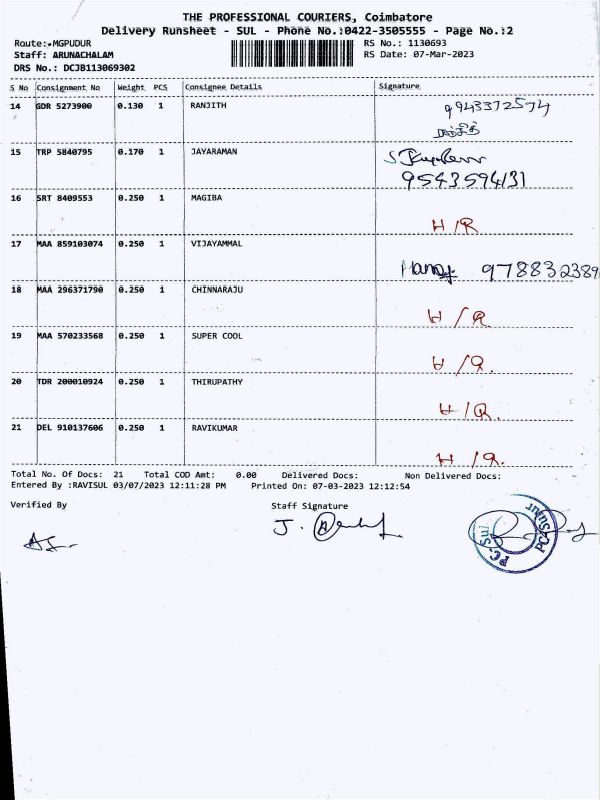 THE PROFESSIONAL COURIERS, Coimbatore
Delivery Runsheet - SUL - Phone No.:0422-3505555 - Page No.:2
Route:-MGPUDUR
RS No.: 1130693
Staff: ARUNACHALAM
RS Date: 07-Mar-2023
DRS No.: DCJB113069302
S No Consignment No Weight PCS Consignee Details Signature
14 GDR 5273900 0.130 1 RANJITH 9943372574
ரஞ்சித்
15 TRP 5840795 0.170 1 JAYARAMAN
9543594131
16 SRT 8409553 0.250 1 MAGIBA
H/R
17 MAA 859103074 0.250 1 VIJAYAMMAL
978832389
18 MAA 296371790 0.250 1 CHINNARAJU
H/R
19 MAA 570233568 0.250 1 SUPER COOL
H/R.
20 TDR 200010924 0.250 1 THIRUPATHY
H/R.
21 DEL 910137606 0.250 1 RAVIKUMAR
H/R.
Total No. Of Docs: 21 Total COD Amt: 0.00 Delivered Docs: Non Delivered Docs:
Entered By :RAVISUL 03/07/2023 12:11:28 PM Printed On: 07-03-2023 12:12:54
Verified By
Staff Signature